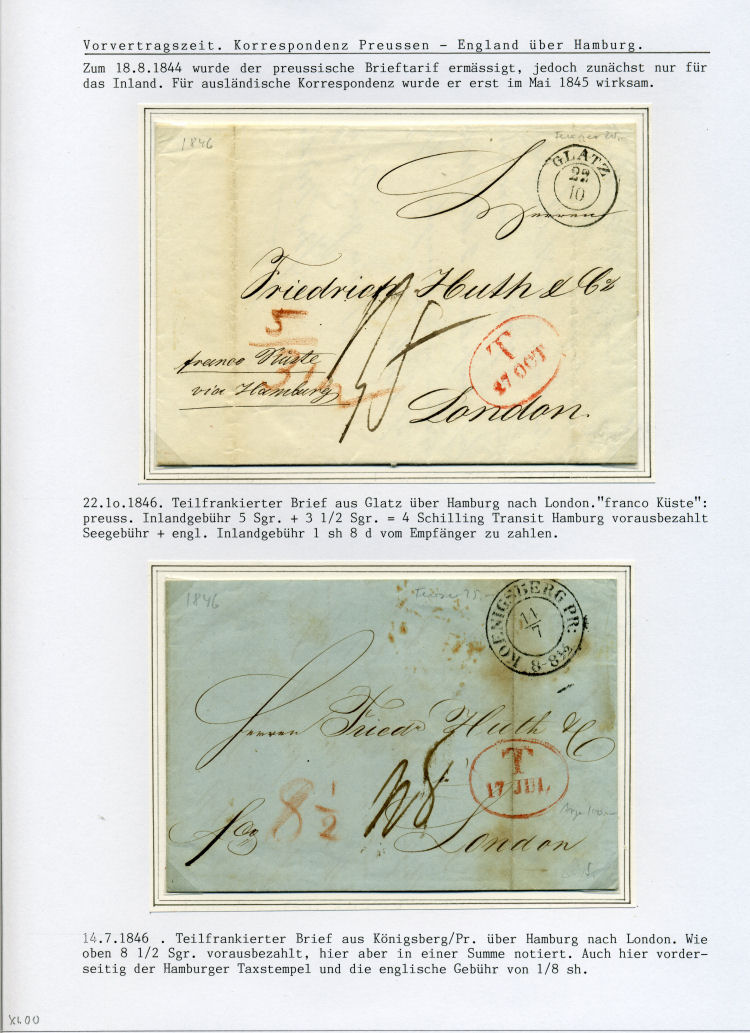 Vorvertragszeit. Korrespondenz Preussen - England über Hamburg.
Zum 18.8.1844 wurde der preussische Brieftarif ermässigt, jedoch zunächst nur für
das Inland. Für ausländische Korrespondenz wurde er erst im Mai 1845 wirksam.
1846
GLATZ
22
10
Herren
Friedrich Huth & Co
5
3 1/2
franco Küste
via Hamburg
1/8
T
27 OCT
London.
22.1o.1846. Teilfrankierter Brief aus Glatz über Hamburg nach London."franco Küste":
preuss. Inlandgebühr 5 Sgr. + 3 1/2 Sgr. = 4 Schilling Transit Hamburg vorausbezahlt
Seegebühr + engl. Inlandgebühr 1 sh 8 d vom Empfänger zu zahlen.
1846
KOENIGSBERG PR:
14
7
8-8½
Herren Friedr Huth & C
T
17 JUL
8 1/2
1/8
London
14.7.1846 . Teilfrankierter Brief aus Königsberg/Pr. über Hamburg nach London. Wie
oben 8 1/2 Sgr. vorausbezahlt, hier aber in einer Summe notiert. Auch hier vorder-
seitig der Hamburger Taxstempel und die englische Gebühr von 1/8 sh.